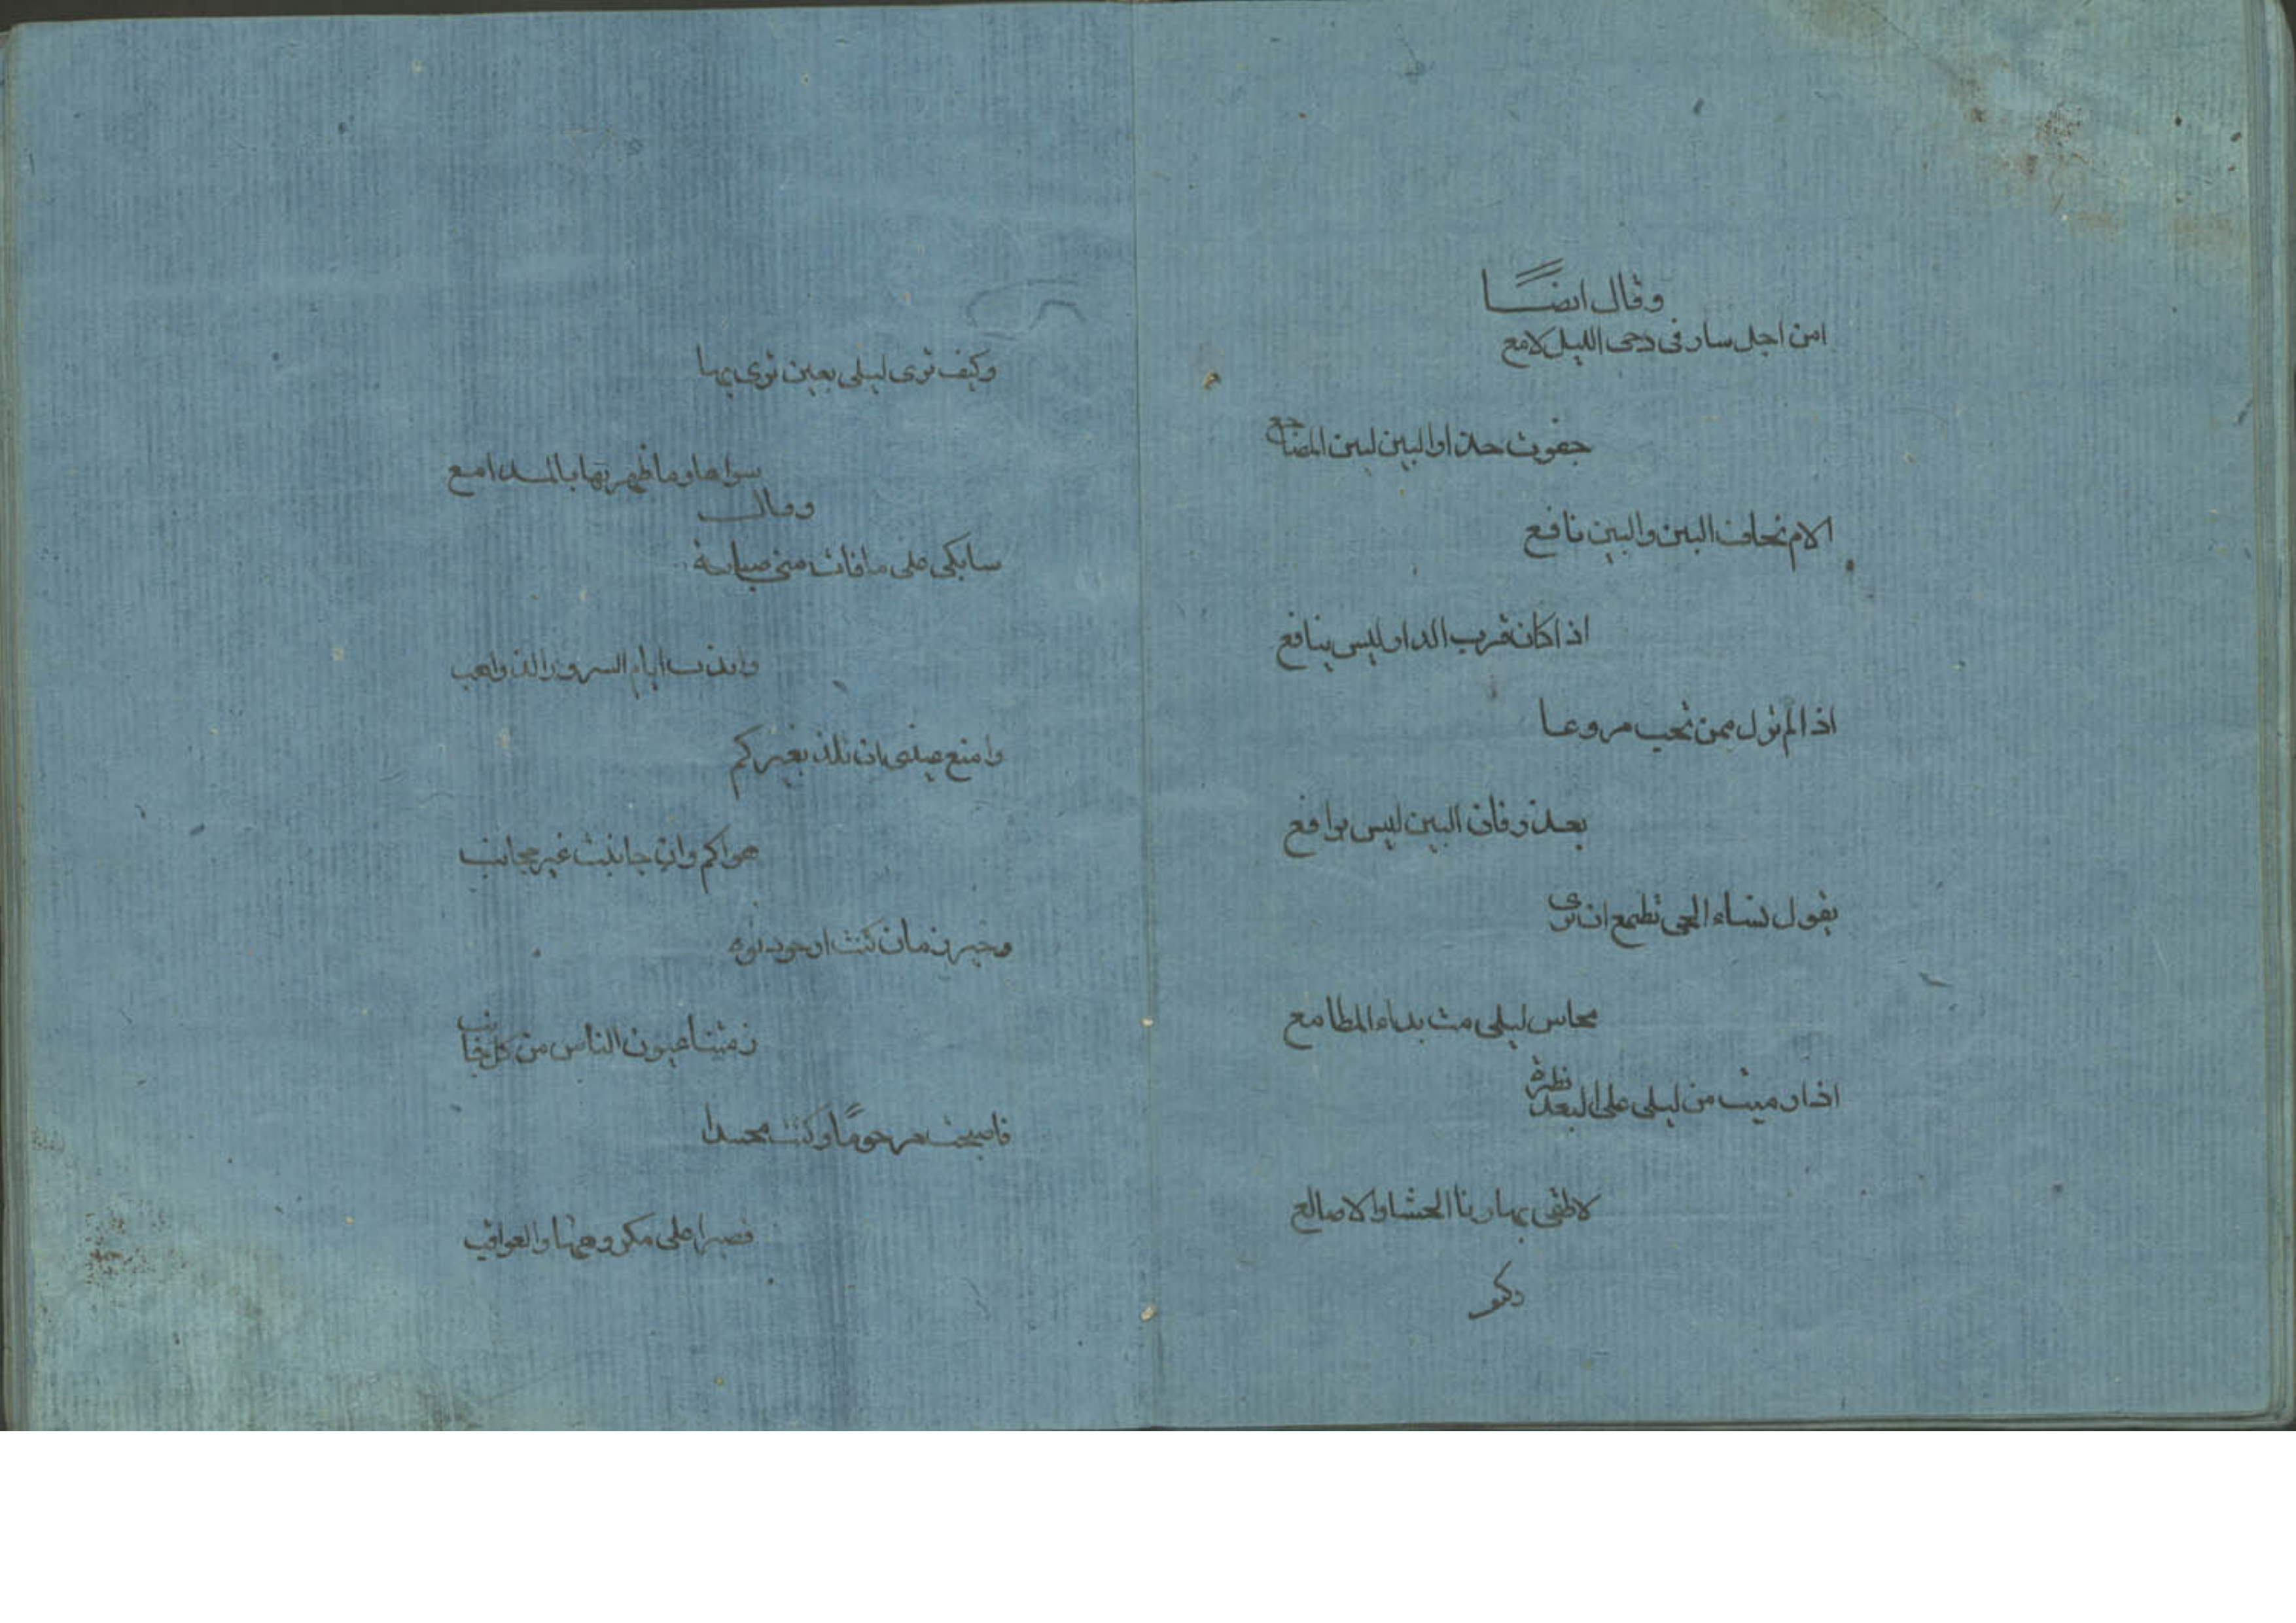 وقال ايضًا
امن اجل سار في دجى الليل لامع
جفوت حذار البين لين المضاجع
الام تخاف البين والبين نافع
اذا كان قرب الدار ليس بنافع
اذا لم تزل ممن تحب مروعا
بعذر فان البين ليس برافع
يقول نساء الحى تطمع ان ترى
محاسن ليلى مت بداء المطامع
اذا رميت من ليلى على البعد نظرة
لاطفى بها نار الحشا والاضالع
وكيف
وكيف ترى ليلى بعين ترى بها
سواها وما طهرتها بالمدامع
وقال
سابكى على ما فات منى صبابة
واندب ايام السرور الذواهب
وامنع عينى ان تلذ بغيركم
هواكم وان جانبت غير مجانب
وخير زمان كنت ارجو دنوه
رمتنا عيون الناس من كل جانب
فاصبحت مرحومًا وكنت محسدا
فصبرا على مكروهها والعواقب